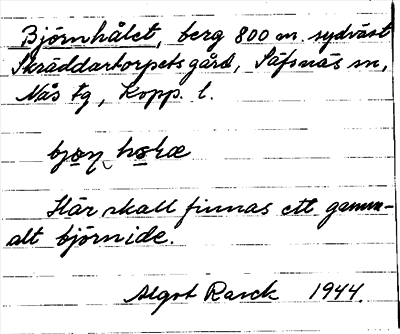 Björnhålet, berg 800 m. sydväst
Skräddartorpets gård, Säfsnäs sn,
Nås tg, Kopp. l.
Här skall finnas ett gamm-
alt björnide.
Algot Rarck 1944.